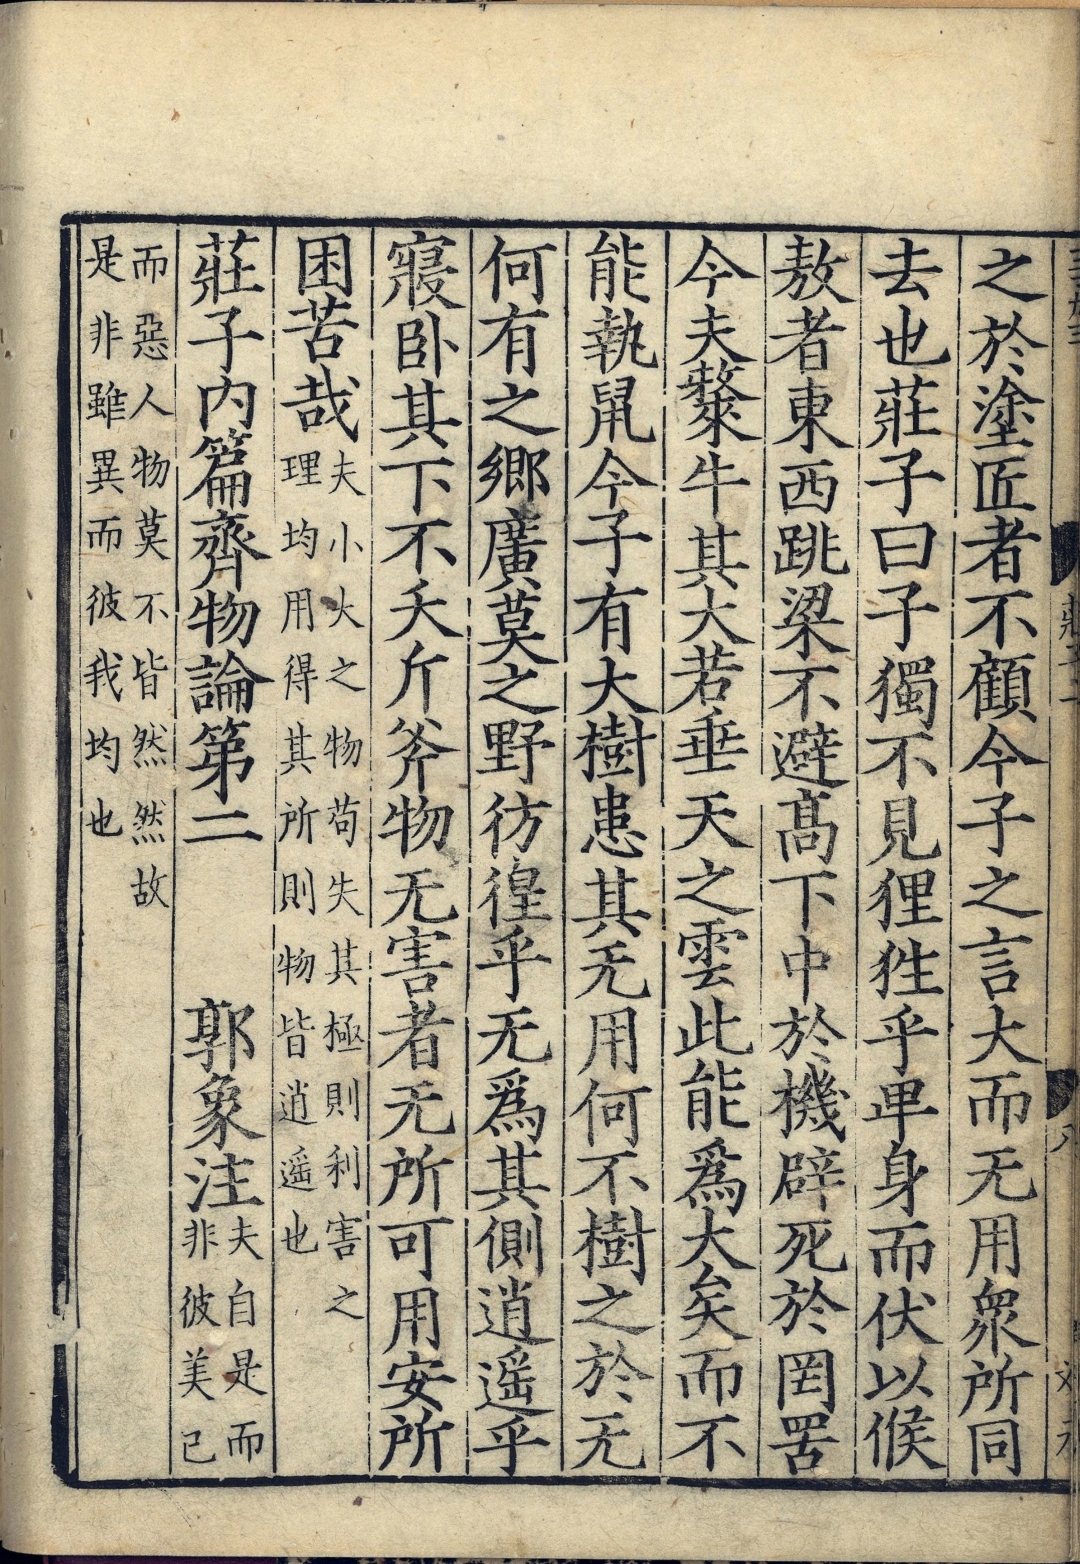 之於塗匠者不顧今子之言大而无用衆所同
去也莊子曰子獨不見狸狌乎卑身而伏以候
敖者東西跳梁不避髙下中於機辟死於罔罟
今夫斄牛其大若垂天之雲此能爲大矣而不
能執鼠今子有大樹患其无用何不樹之於无
何有之鄉廣莫之野彷徨乎无爲其側逍遥乎
寢卧其下不夭斤斧物无害者无所可用安所
困苦哉
夫小大之物苟失其極則利害之
理均用得其所則物皆逍遥也
莊子內篇齊物論第二 郭象注
夫自是而
非彼美己
而惡人物莫不皆然然故
是非雖異而彼我均也